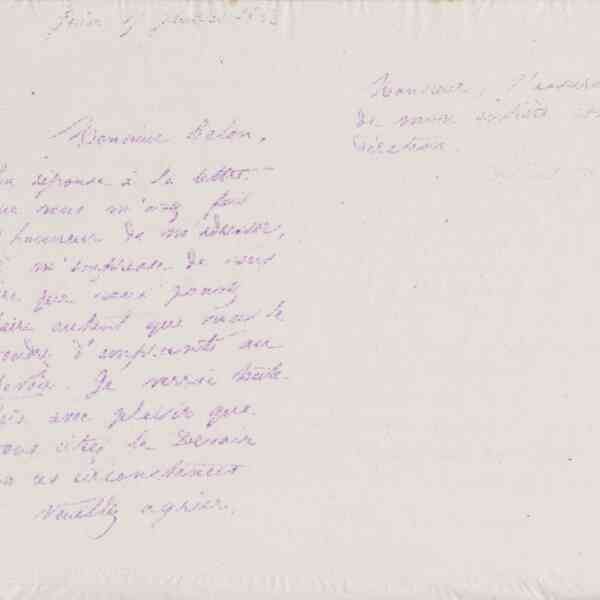 Monsieur
En réponse à la lettre
que vous m'avez fait
l'honneur de m'adresser,
je m'empresse de vous
dire que vous pouvez
faire autant que vous le
voudrez d'emprunts au
Devoir. Je verrai toute-
fois avec plaisir que
vous citiez le Devoir
en ces circonstances
Veuillez agréer,
Monsieur, l'assurance
de mon entière con-
sidération.